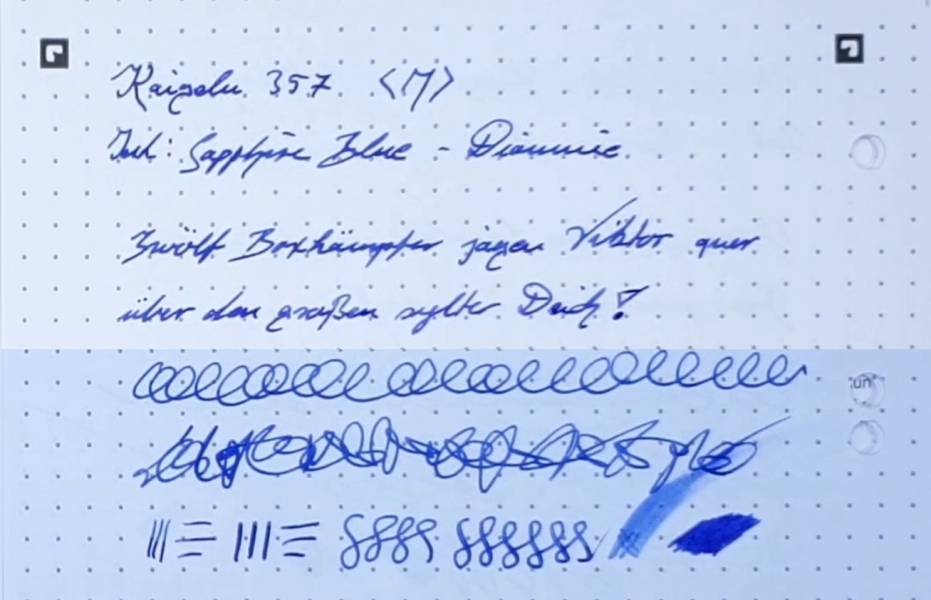 Kaigelu 357 <M>
Ink: Sapphire Blue - Diamine
Zwölf Boxkämpfer jagen Viktor quer
über den großen sylter Deich!